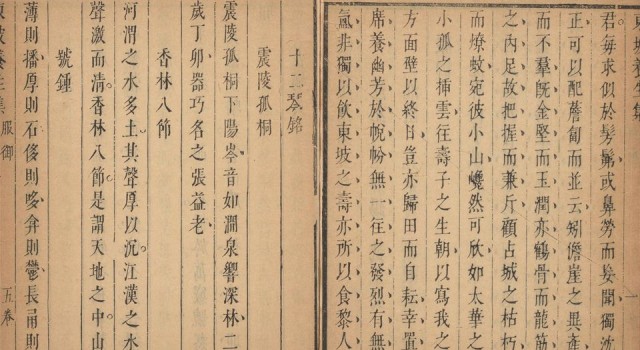 君每求似於髣髴或鼻勞而妄聞獨沈
正可以配薝蔔而並云矧儋崖之異產
而不羣既金堅而玉潤亦鶴骨而龍筋
之內足故把握而兼斤顧占城之枯朽
而燎蚊宛彼小山巉然可欣如太華之
小孤之挿雲往壽子之生朝以寫我之
方面壁以終日豈亦歸田而自耘幸置
席養幽芳於帨帉無一往之發烈有無
氳非獨以飲東坡之壽亦所以食黎人
十二琴銘
震陵孤桐
震陵孤桐下陽岑音如澗泉響深林二
歲丁卯器巧名之張益老
香林八節
河渭之水多土其聲厚以沉江漢之水
聲激而清香林八節是謂天地之中山
號鍾
薄則播厚則石侈則哆弇則鬱長甬則
養生集 服御 五卷